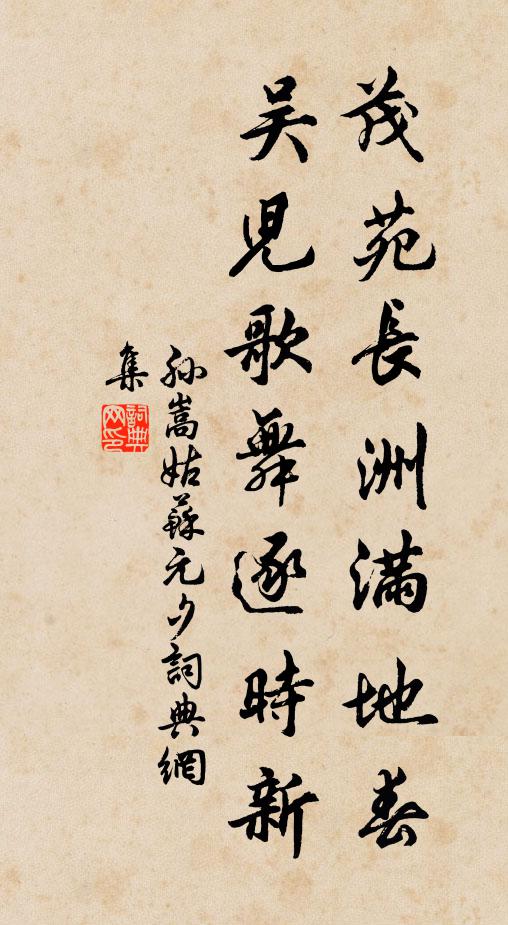 茂苑長洲滿地春
吴兒歌舞逐時新
孙嵩姑蘇元夕詞典網
集
詞典网印